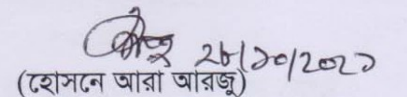 ২৮/১০/২০২১
(হোসনে আরা আরজু)